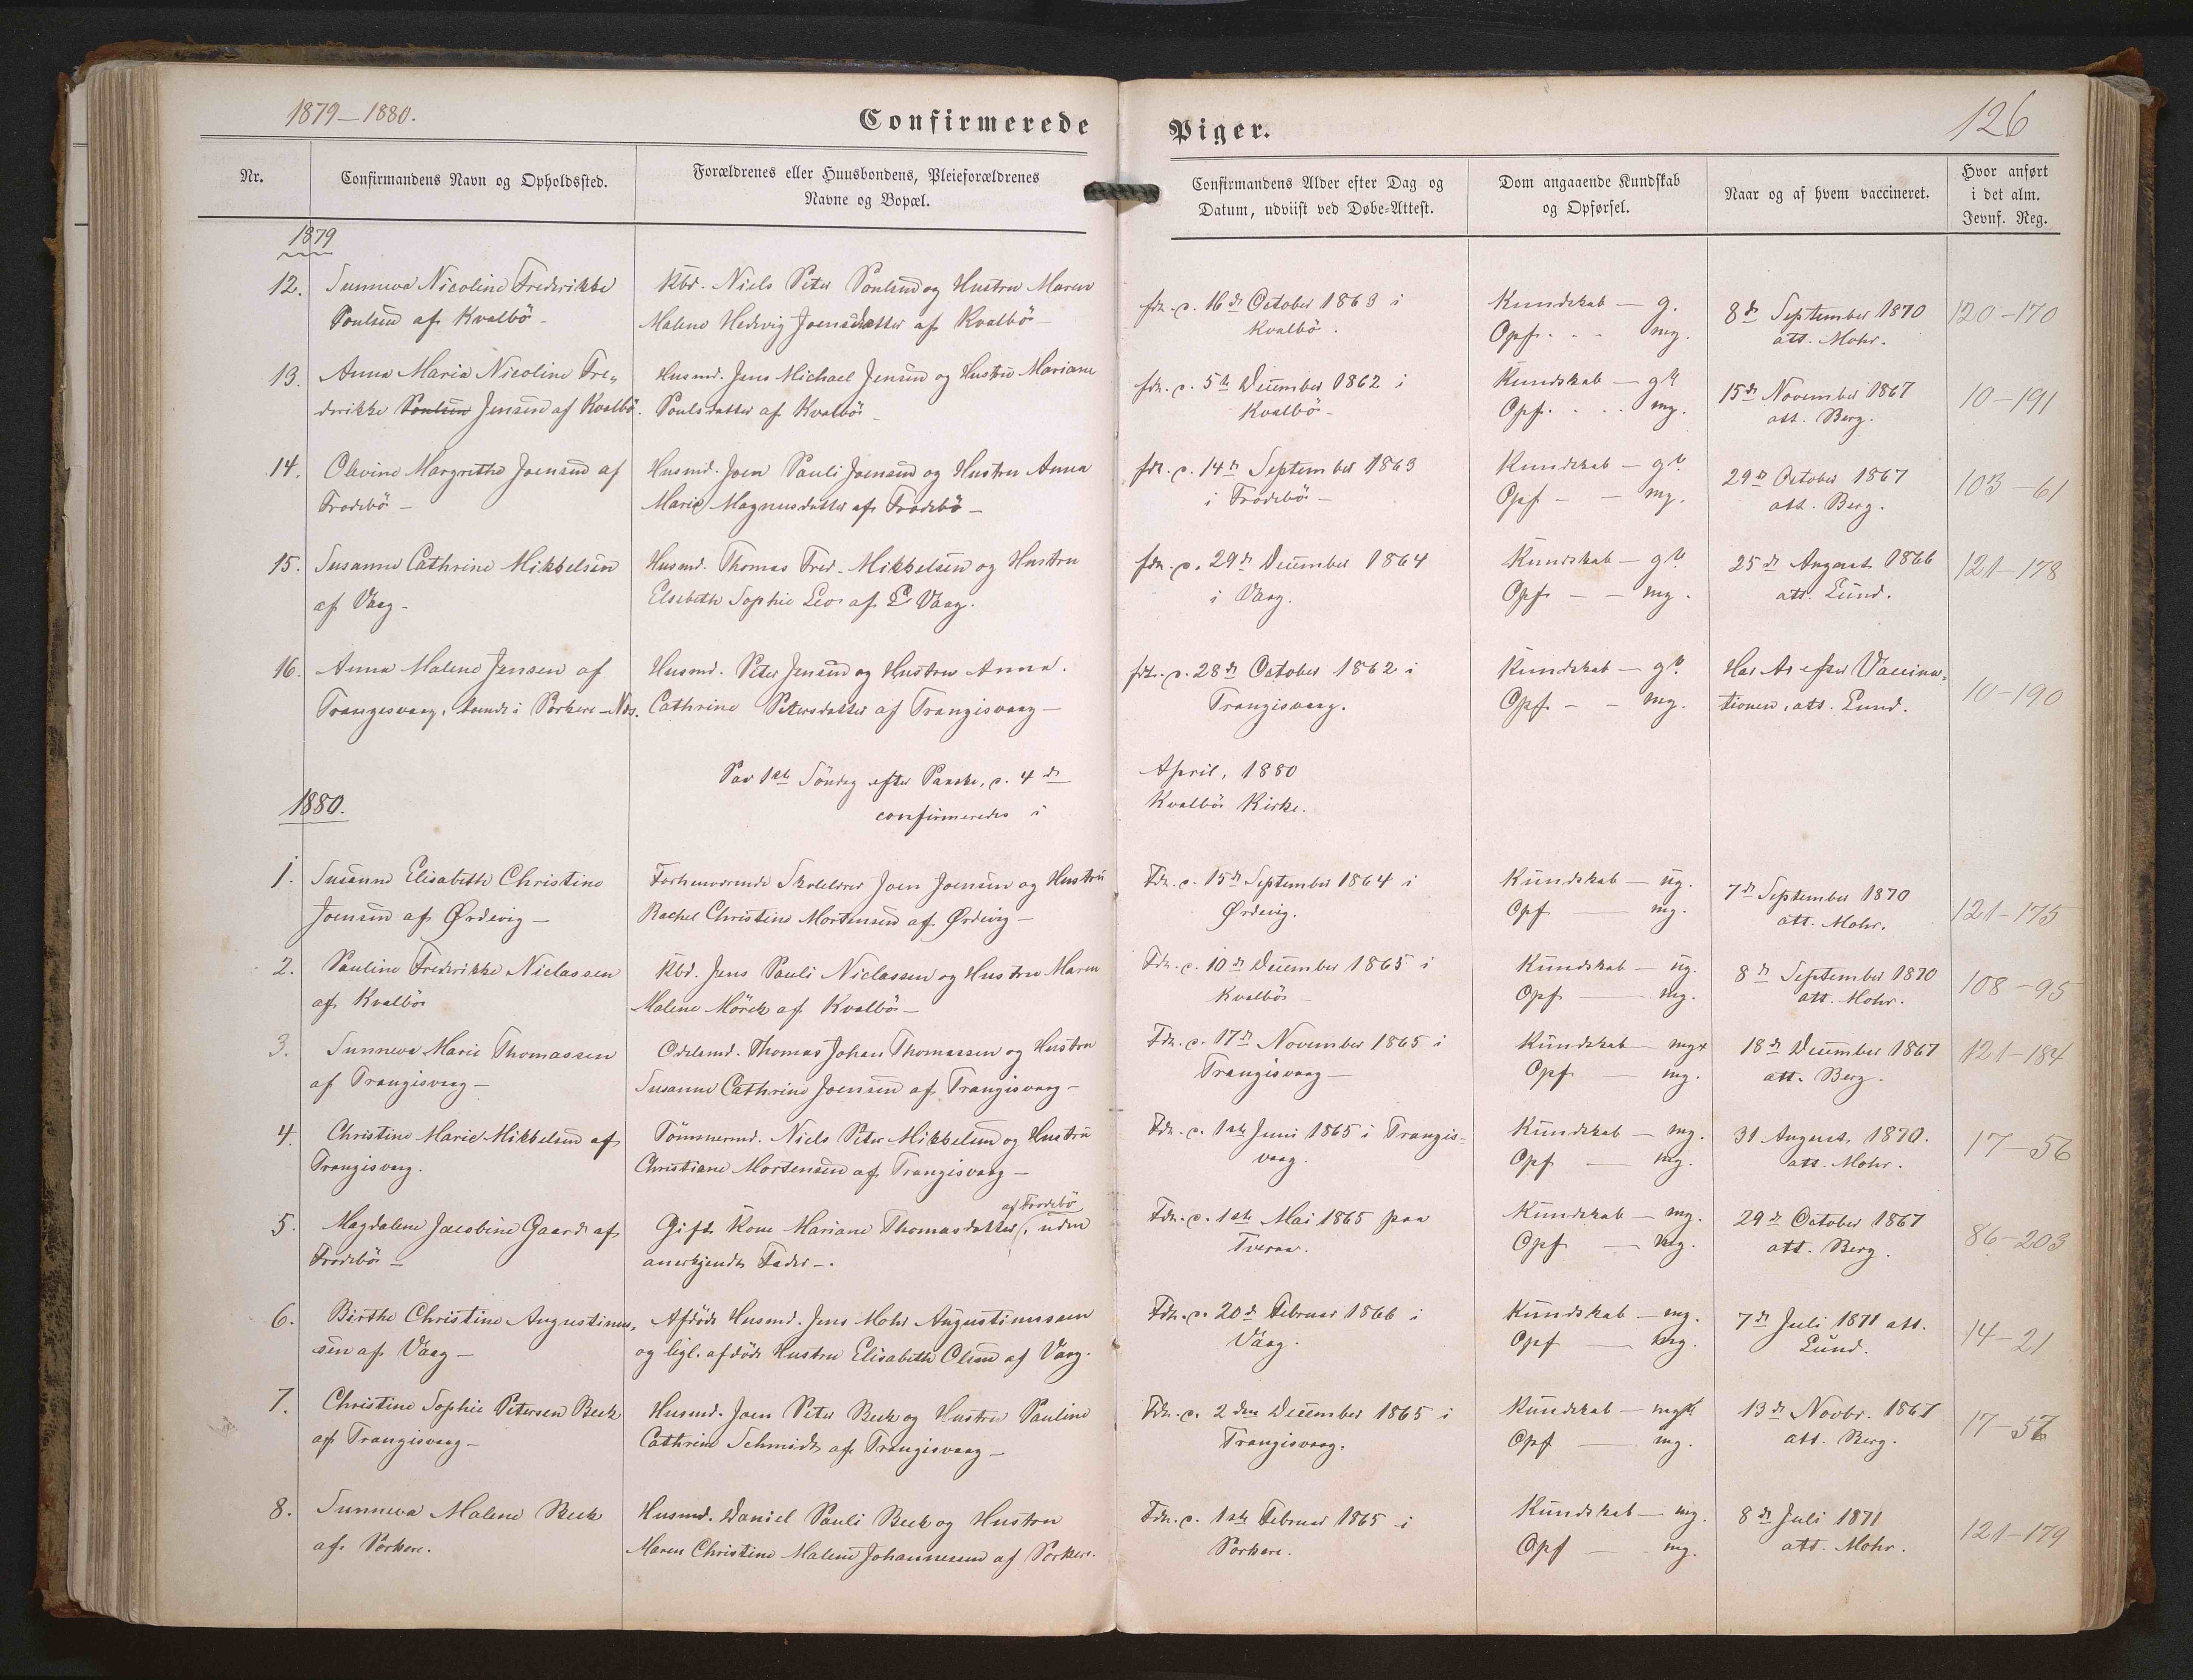 1879–1880.
Confirmerede Piger.
126
Nr.
Confirmandens Navn og Opholdssted.
Forældrenes eller Huusbondens, Pleieforældrenes
Navne og Bopæl.
Confirmandens Alder efter Dag og
Datum, udviist ved Døbe-Attest.
Dom angaaende Kundskab
og Opførsel.
Naar og af hvem vaccineret.
Hvor anført
i det alm.
Jevnf. Reg.
1879
12. Sunneva Nicoline Frederikke
Poulsen af Kvalbö –
Kbd. Niels Peter Poulsen og Hustru Maren
Malene Hedevig Joensdatter af Kvalbö –
fdt. d. 16de October 1863 i
Kvalbö.
Kundskab – g.
Opf. - - mg.
8de September 1870
att. Mohr.
120–170
13. Anna Maria Nicoline Fre„
derikke Poulsen Jensen af Kvalbö.
Husmd. Jens Michael Jensen og Hustru Mariane
Poulsdatter af Kvalbö –
fdt. d. 5te December 1862 i
Kvalbö –
Kundskab – gt.
Opf. - - mg.
15de November 1867
att. Berg.
10–191
14. Olevine Margrethe Joensen af
Frodebö –
Husmd. Joen Pauli Joensen og Hustru Anna
Marie Magnusdatter af Frodebö –
fdt. d. 14de September 1863
i Frodebö –
Kundskab – gt.
Opf – – mg.
29de October 1867
att. Berg.
103–61
15. Susanne Cathrine Mikkelsen
af Vaag –
Husmd. Thomas Fred. Mikkelsen og Hustru
Elsebeth Sophie Leo af Vaag.
fdt. d. 29de December 1864
i Vaag.
Kundskab – gt.
Opf – – mg.
25de August 1866
att. Lund.
121–178
16. Anna Malene Jensen af
Trangesvaag, boende i Porkere – Næs.
Husmd. Peter Jensen og Hustru Anna
Cathrine Petersdatter af Trangisvaag –
fdt. d. 28de October 1862 i
Trangisvaag.
Kundskab – gt.
Opf – – mg.
Har Ar efter Vaccina„
tionen, att. Lund.
10–190
1880.
Paa 1ste Söndag efter Paaske, d. 4de April, 1880
confirmeredes i Kvalbö Kirke.
1. Susanne Elisabeth Christine
Joensen af Ørdevig –
Forhenværende Skolelærer Joen Joensen og Hustru
Rachel Christine Mortensen af Ørdevig –
Fdt. d. 15de September 1864 i
Ørdevig.
Kundskab – ug.
Opf – mg.
7de September 1870
att. Mohr.
121–175
2. Pauline Frederikke Niclassen
af Kvalbö
Kbd. Jens Pauli Niclassen og Hustru Maren
Malene Mörck af Kvalbö –
Fdt. d. 10de December 1865 i
Kvalbö –
Kundskab – ug.
Opf – mg.
8de September 1870
att. Mohr.
108–95
3. Sunneva Marie Thomassen
af Trangisvaag –
Odelsmd. Thomas Johan Thomassen og Hustru
Susanne Cathrine Joensen af Trangisvaag –
Fdt. d. 17de November 1865 i
Trangisvaag –
Kundskab – mg+
Opf – mg.
18de December 1867
att. Berg.
121–184
4. Christine Marie Mikkelsen af
Trangisvaag.
Tömmermd. Niels Peter Mikkelsen og Hustru
Christiane Mortensen af Trangisvaag –
Fdt. d. 1ste Juni 1865 i Trangis-
vaag.
Kundskab – mg.
Opf – mg.
31 August 1870.
att. Mohr.
17–56
5. Magdalene Jacobine Gaard af
Frodebö –
af Frodebö
Gift Kone Mariane Thomasdatter, uden
anerkjendt Fader –.
Fdt. d. 1ste Mai 1865 paa
Tveraa.
Kundskab – mg.
Opf – mg.
29de October 1867
att. Berg.
86–203
6. Birthe Christine Augustinus„
sen af Vaag –
Afdöde Husmd. Jens Mohr Augustinussen
og ligl. afdöde Hustru Elisabeth Olsen af Vaag.
Fdt. d. 20de Februar 1866 i
Vaag.
Kundskab – mg.
Opf – mg.
7de Juli 1871 att.
Lund.
14–21
7. Christine Sophie Petersen Beck
af Trangisvaag –
Husmd. Joen Peter Beck og Hustru Pauline
Cathrine Schmidt af Trangisvaag –
Fdt. d. 2den December 1865 i
Trangisvaag.
Kundskab – mgt.
Opf – mg.
13de Novbr. 1867
att. Berg.
17–57
8. Sunneva Malene Beck
af Porkere.
Husmd. Daniel Pauli Beck og Hustru
Maren Christine Malene Johannesen af Porkere.
Fdt. d. 1ste Februar 1865 i
Porkere.
Kundskab – mg.
Opf – mg.
8de Juli 1871
att. Mohr.
121–179